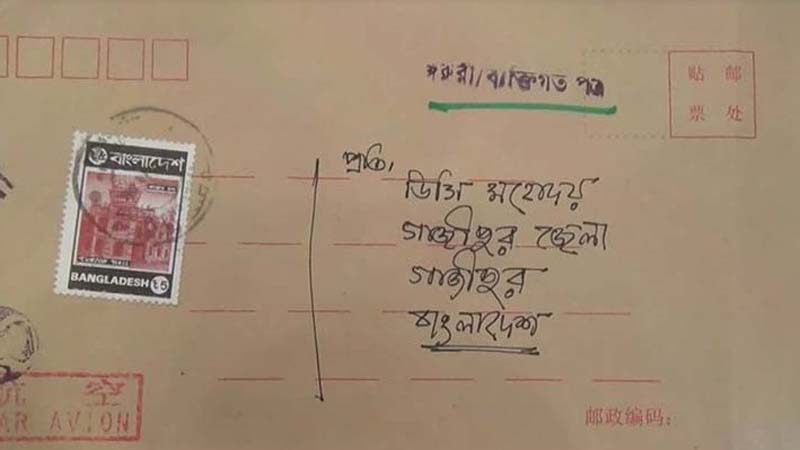 জরুরী/ব্যক্তিগত পত্র
贴 邮
票 处
বাংলাদেশ
BANGLADESH
৳5
প্রতি,
ডিসি মহোদয়
গাজীপুর জেলা
গাজীপুর
বাংলাদেশ
空
AR AVION
邮政编码: